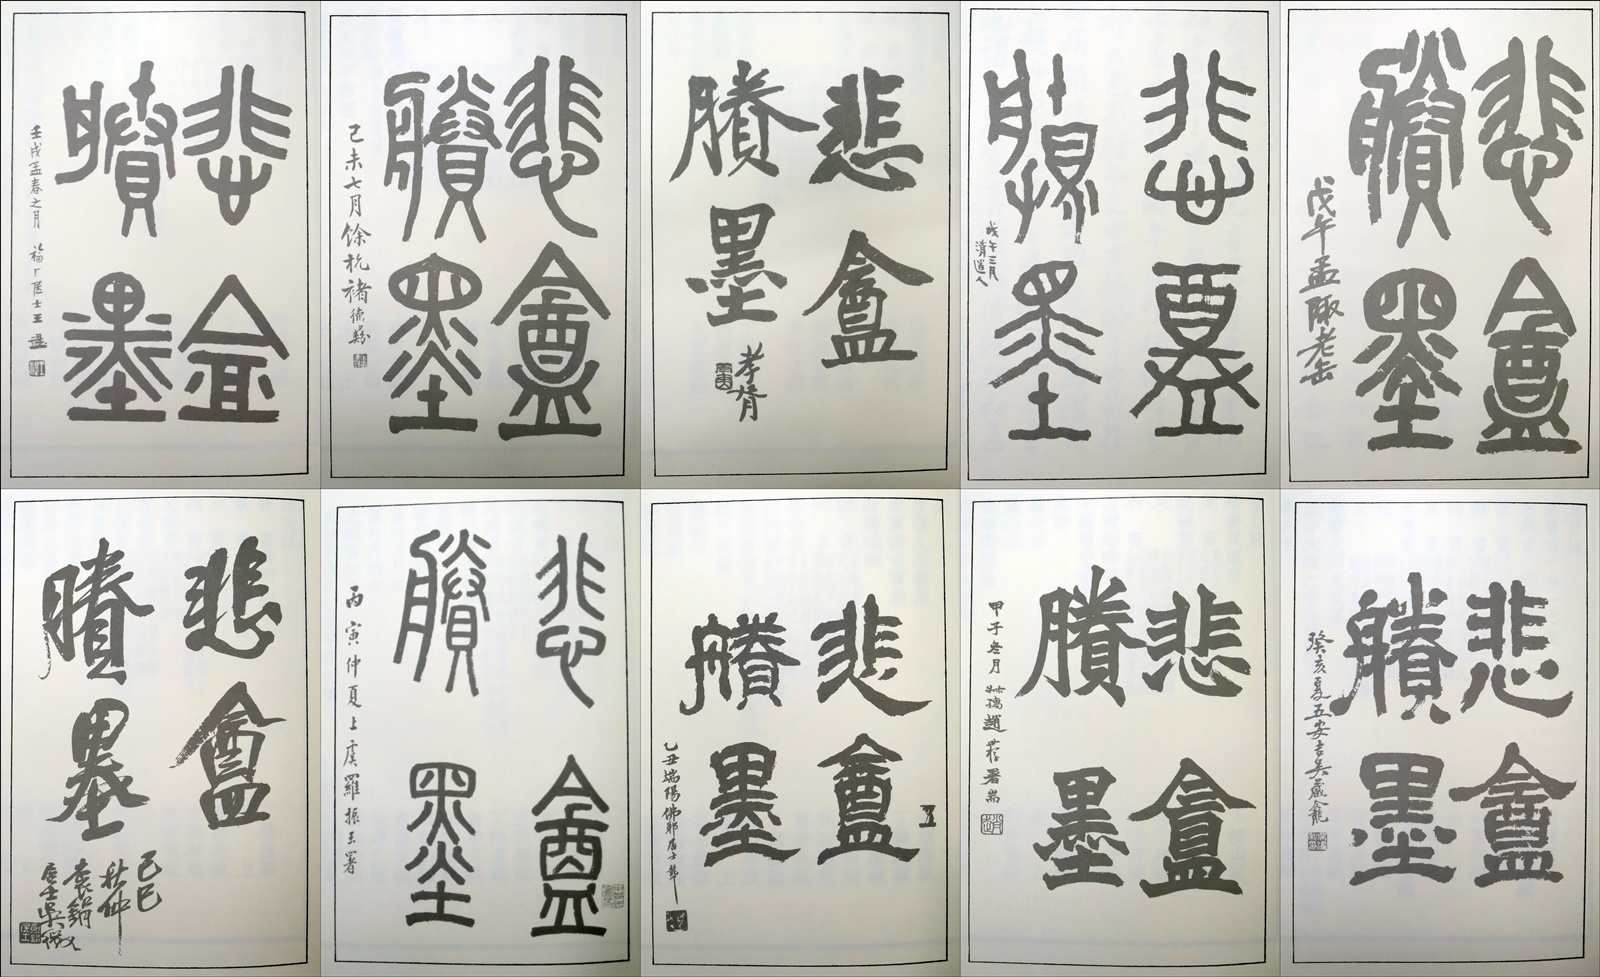 悲盦
賸墨
壬戌孟春之月 福厂居士王禔
悲盦
賸墨
己未七月餘杭褚德彝
悲盦
賸墨
孝胥
悲盦
賸墨
戊午三月
清道人
悲盦
賸墨
戊午孟陬老缶
悲盦
賸墨
己巳
秋仲
袌鋗
居士吳徵
悲盦
賸墨
丙寅仲夏上虞羅振玉署
悲盦
賸墨
乙丑端陽佛耶居士
悲盦
賸墨
甲子冬月 叔孺趙 署耑
悲盦
賸墨
癸亥夏五安吉吳藏龕